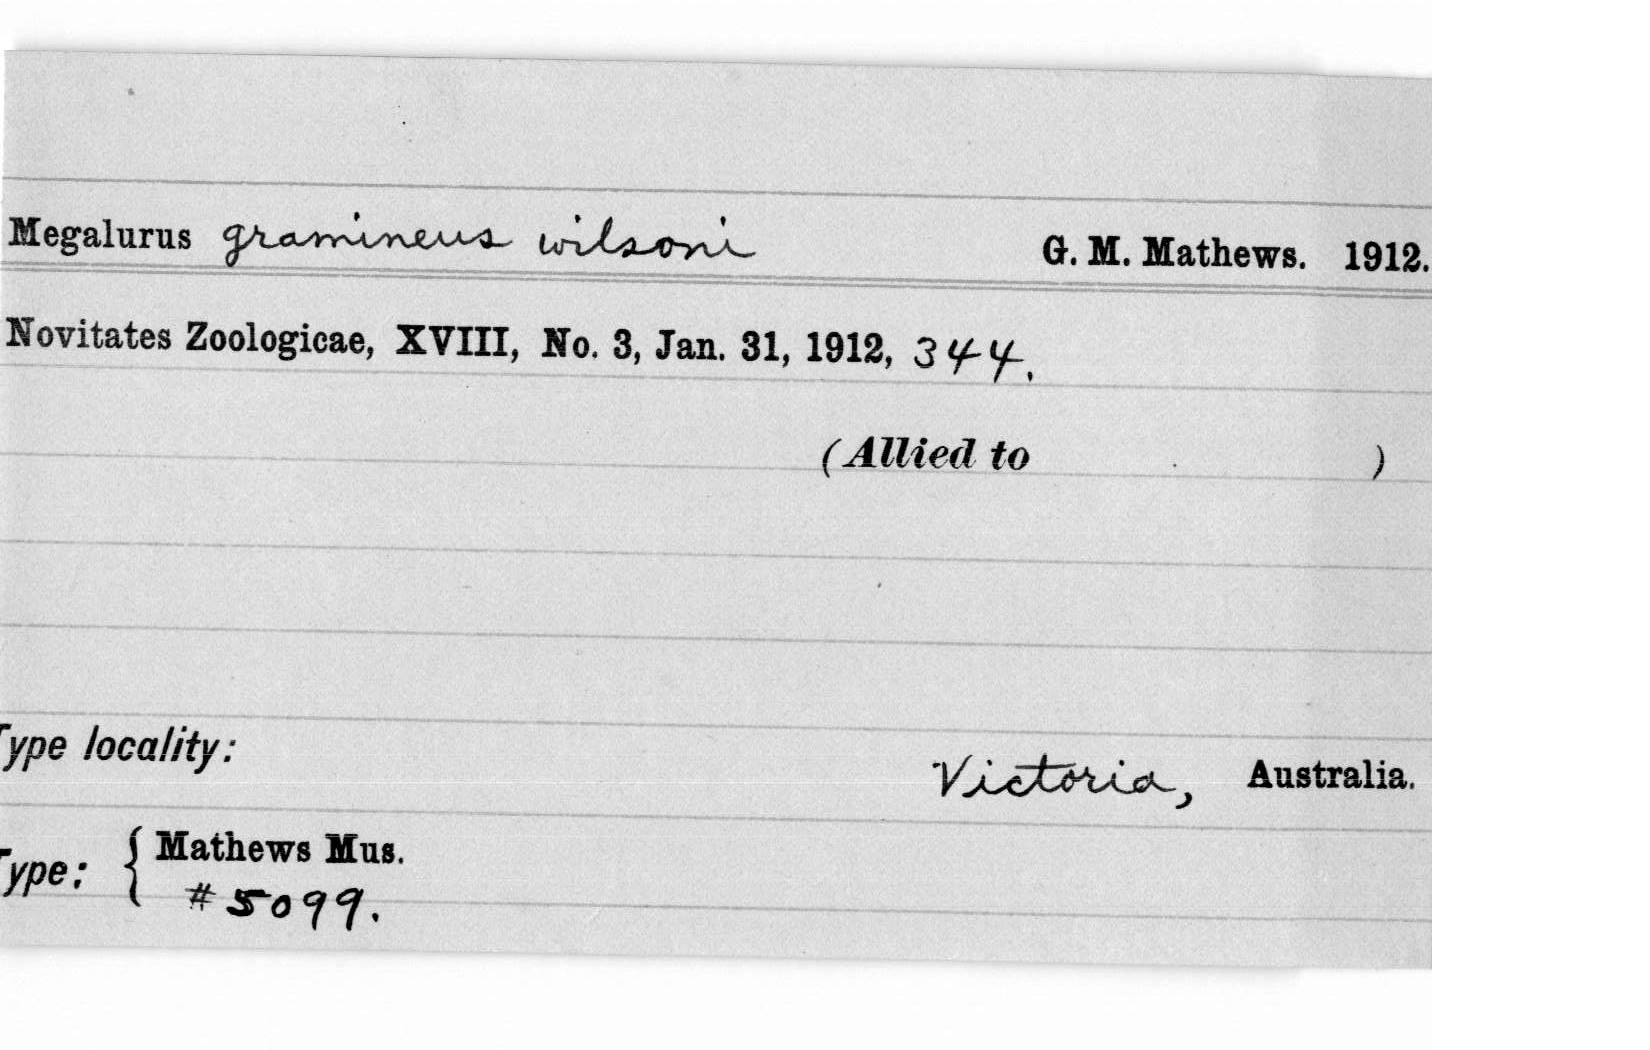 Megalurus gramineus wilsoni G. M. Mathews. 1912.
Novitates Zoologicae, XVIII, No. 3, Jan. 31, 1912, 344.
(Allied to )
Type locality:
Victoria, Australia.
Type: { Mathews Mus.
#5099.